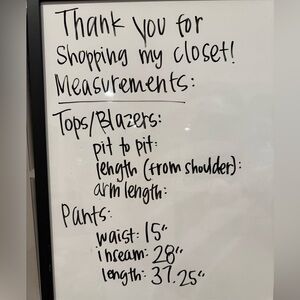 Thank you for
Shopping my closet!
Measurements:
Tops/Blazers:
pit to pit:
length (from shoulder):
arm length:
Pants:
waist: 15"
inseam: 28"
length: 37.25"